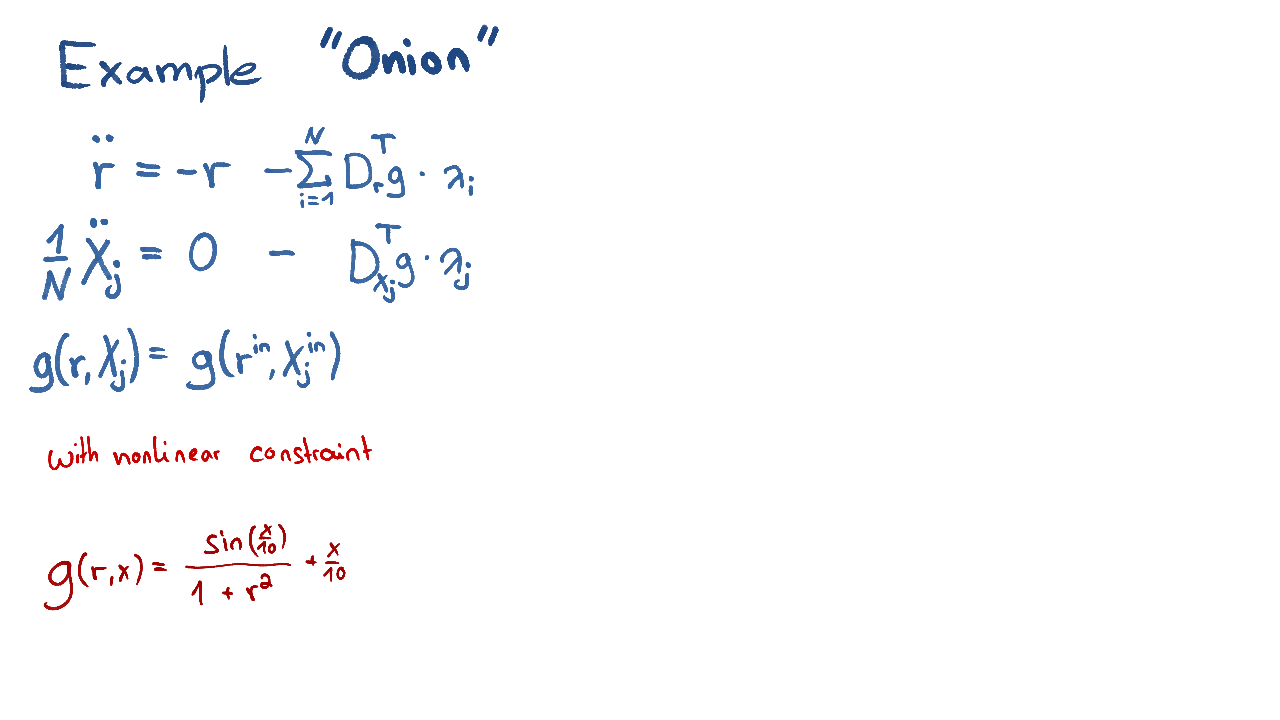 Example "Onion"
r̈ = -r - ∑_{i=1}^{N} D_r^T g · λ_i
1/N Ẍ_j = 0 - D_{X_j}^T g · λ_j
g(r, X_j) = g(r^{in}, X_j^{in})
with nonlinear constraint
g(r,x) = sin(x/10) / (1 + r²) + x/10